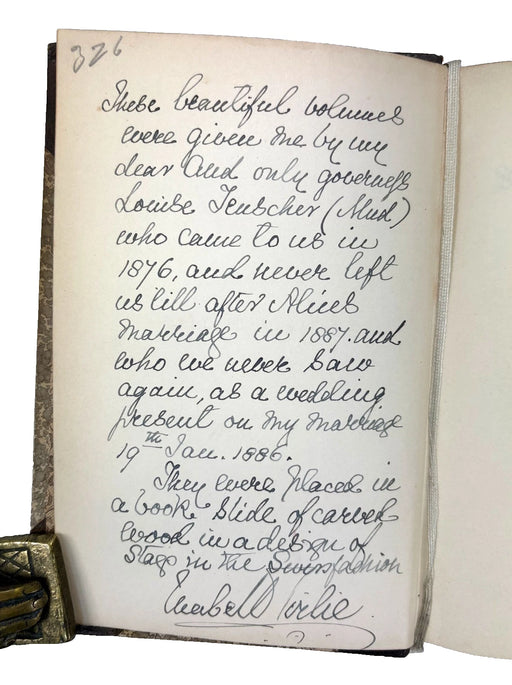 326
These beautiful volumes
were given me by my
dear and only governess
Louise Teuscher (Mud)
who came to us in
1876, and never left
us 'till after Alice's
marriage in 1887. and
who we never saw
again, as a wedding
present on my marriage
19th Jan. 1886.
They were placed in
a book slide of carved
wood in a design of
Stags in the Swiss fashion
Mabell Airlie.